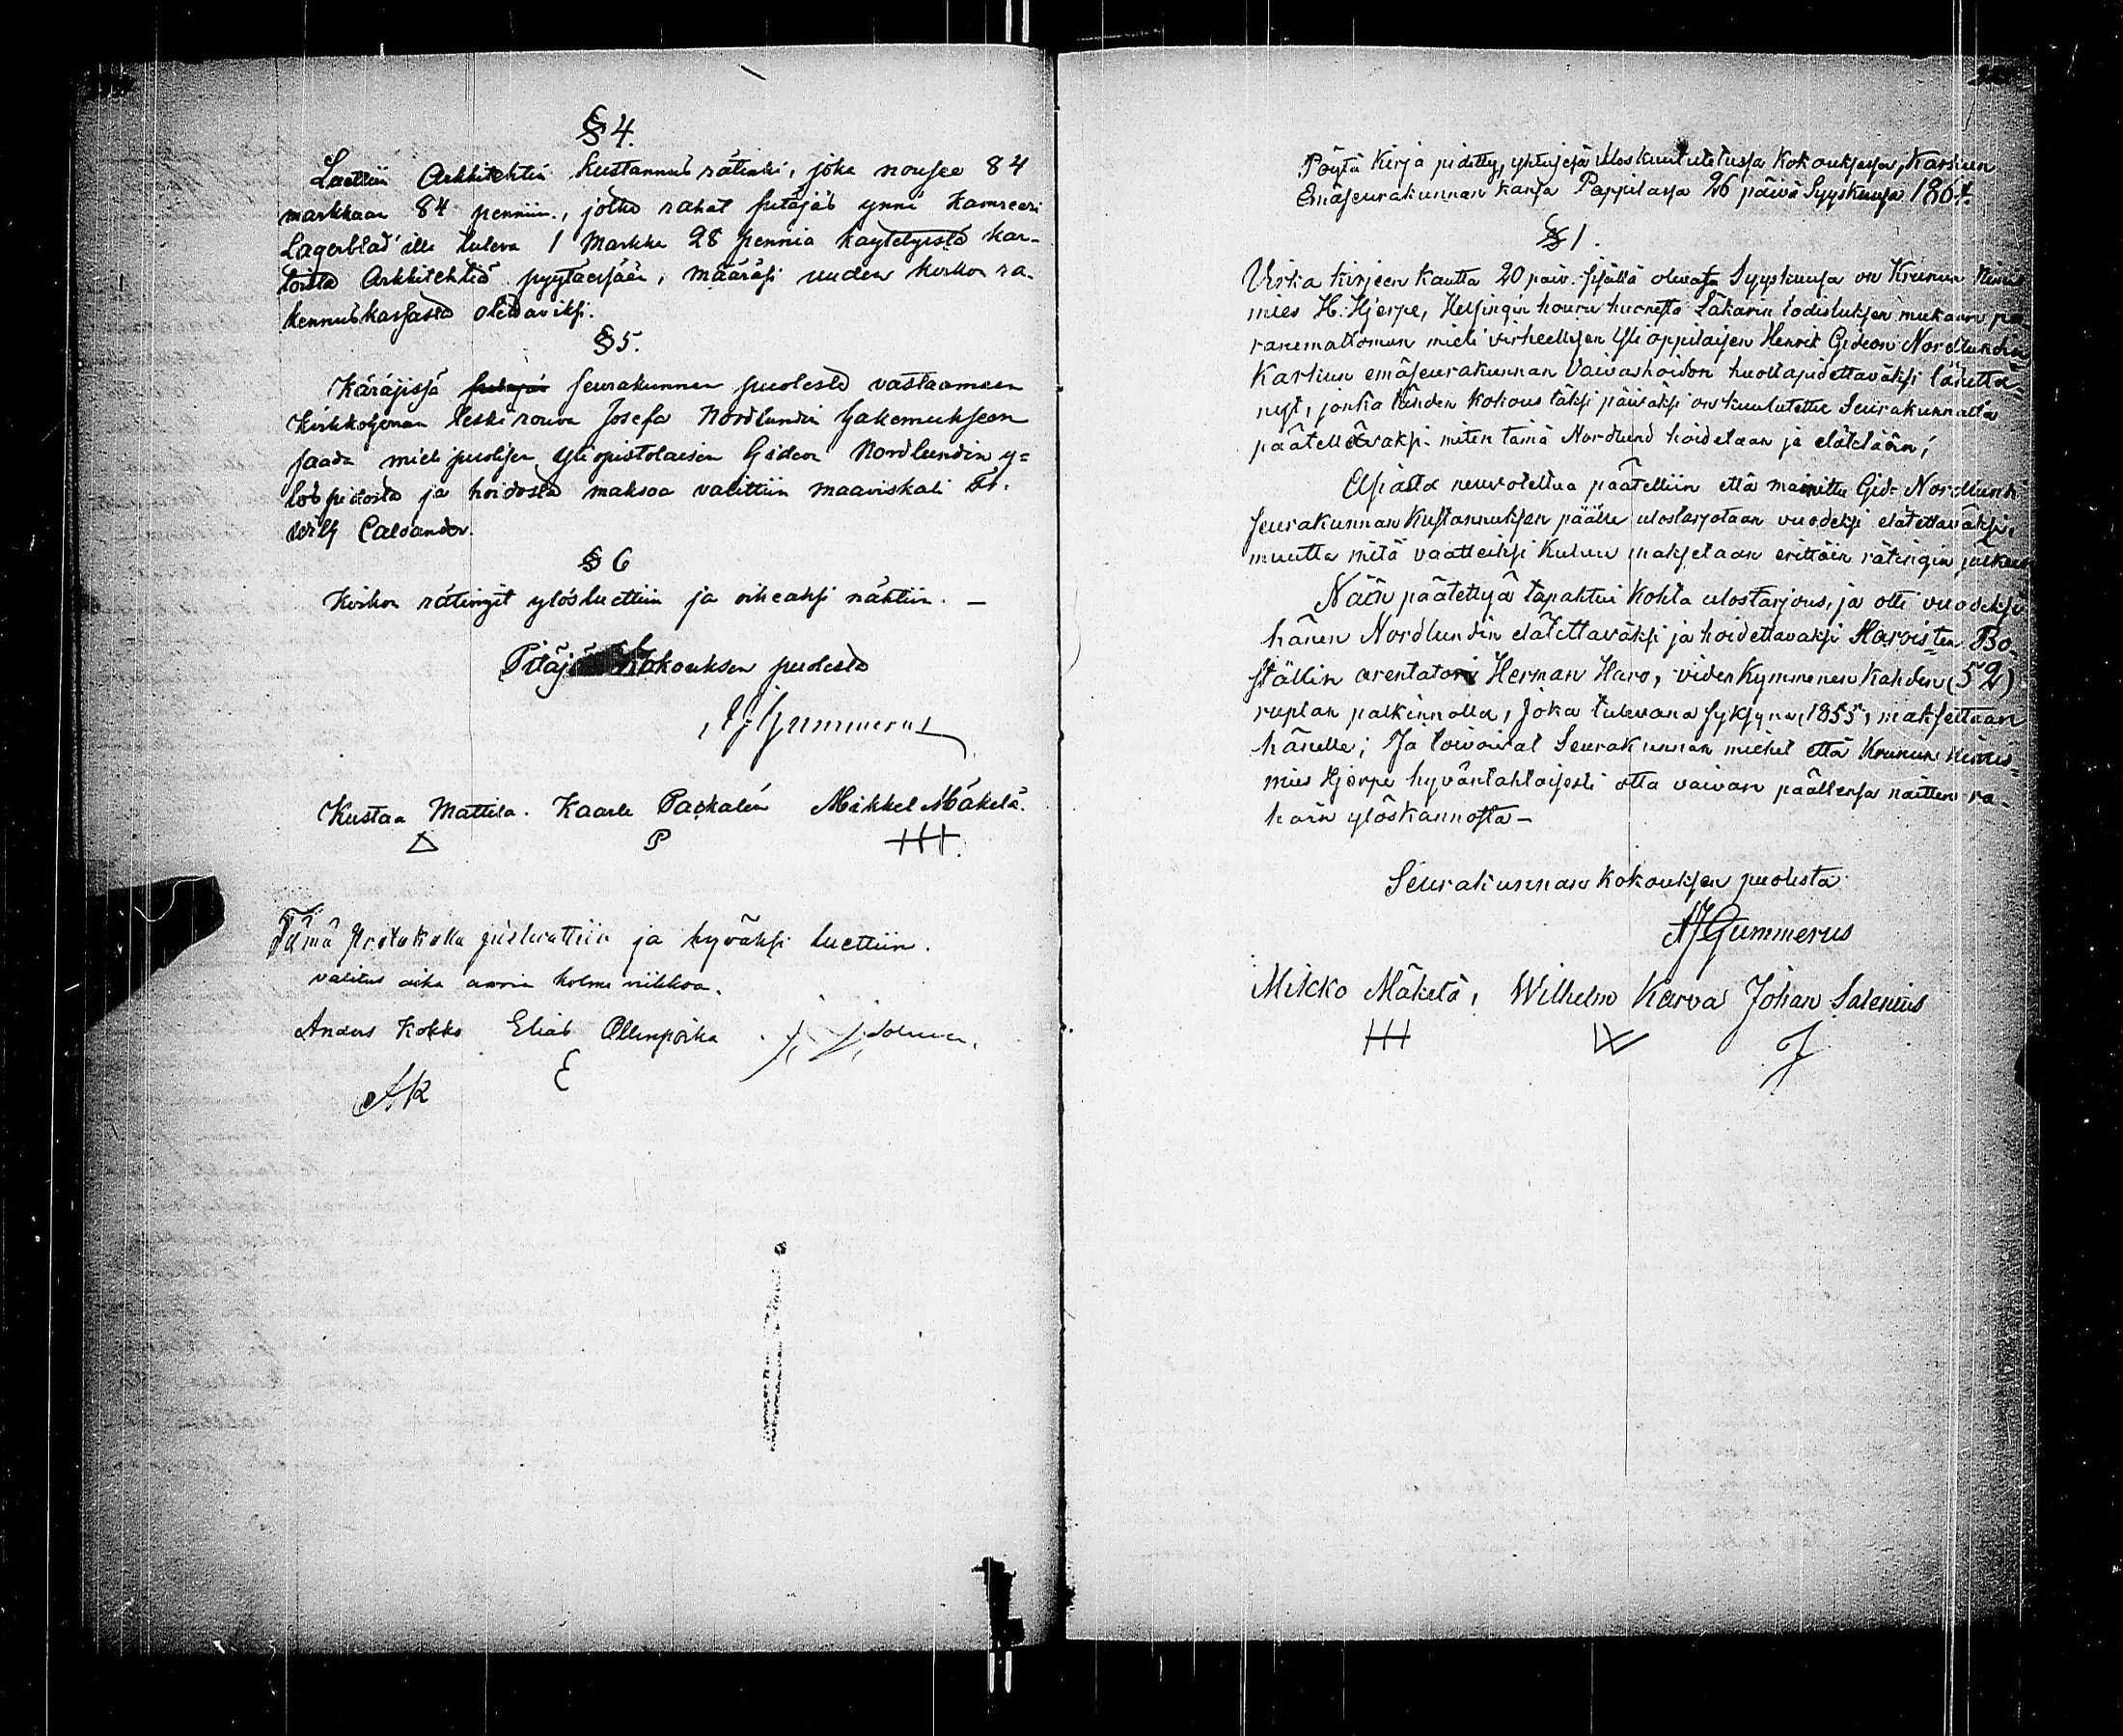 § 4.
Luettiin Arkkitehtin kustannus rätinki, joka nousee 84
markkaan 84 penniin, jotka rahat pitäjäs ynnä Kamreeri
Lagerblad'ille tuleva 1 Markka 28 penniä käytetyistä kar-
toista Arkkitehtiä pyytäessään, määräsi uuden kirkon ra-
kennuskassasta otettaviksi.
§ 5.
Käräjissä seurakunnan puolesta vastaamaan
Kirkkoherran leskirouva Josefa Nordlundin hakemukseen
saada mieli puolisen yliopistolaisen Gideon Nordlundin y-
lös pidosta ja hoidosta maksoa valittiin maaviskali
Calsander.
§ 6
Kirkon rätingit ylösluettiin ja oikeaksi nähtiin. —
Pitäjä kokouksen puolesta
Gummerus
Kustaa Mattila. Kaarle Packalén Mikkel Mäkelä.
P
Tämä Protokolla ja hyväksi luettiin.
valitus aika annin kolme viikkoa.
Anders Kokko Elias Ollinpoika
AK E
Pöytä Kirja pidetty, yhteisesä uloskuulutetussa Kokouksessa, Karkun
Emäseurakunnan kansa Pappilassa 26 päivä Syyskuusa 1864.
§ 1.
Virka kirjeen kautta 20 päiv. sisällä olevasa Syyskuusa on Kruunun Nimis
mies H. Hjerpe, Helsingin houru huonesta Läkärin todistuksen mukaan pa-
ranemattoman mieli virheellisen Yli oppilaisen Henrik Gideon Nordlundin
Karkun emäseurakunnan Vaivashoidon huollapidettäväksi lähettä-
nyt, jonka tähden Kokous täksi päiväksi on kuulutettu Seurakunnalta
päätettäväksi miten tämä Nordlund hoidetaan ja elätetään;
Asiasta neuvoteltua päätettiin että mainittu Gid: Nordlund
seurakunnan Kustannuksen päälle ulostarjotaan vuodeksi elätettäväksi,
muutta mitä vaatteiksi kuluu maksetaan erittäin rätingin jälkeen
Näin päätettyä tapahtui kohta ulostarjous, ja otti vuodeksi
hänen Nordlundin elätettäväksi ja hoidettavaksi Harvisten Bo-
ställin arentatori Herman Haro, viiden Kymmenen Kahden (52)
ruplan palkinnolla, Joka tulevana syksynä, 1855, maksettaan
hänelle; Ja toivoivat Seurakunnan miehet että Krunun nimis-
mies Hjerpe hyväntahtoisesti otta vaivan päällensä näitten ra-
hain ylöskannosta —
Seurakunnan kokouksen puolesta
AJGummerus
Mikko Mäkelä, Wilhelm Karva Johan Salenius
W J